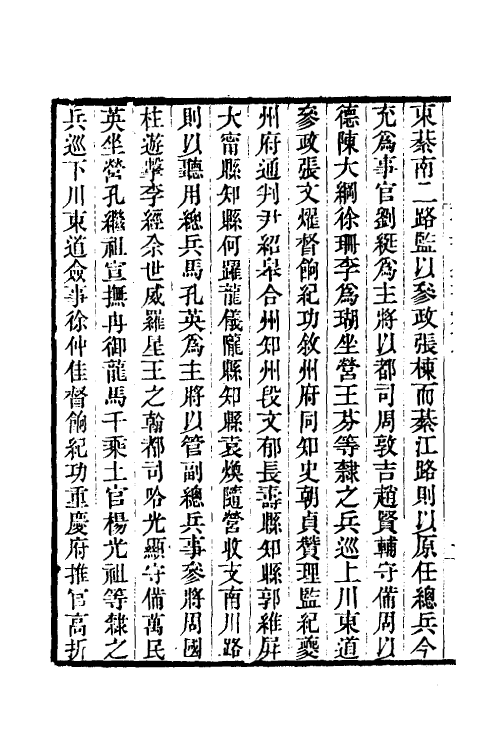 東綦南二路監以參政張棟而綦江路則以原任總兵今
充為事官劉綎為主將以都司周敦吉趙賢輔守備周以
德陳大綱徐珊李為瑚坐營王芬等隸之兵巡上川東道
參政張文燿督餉紀功敘州府同知史朝貞贊理監紀夔
州府通判尹紹皋合州知州段文郁長壽縣知縣郭維屏
大甯縣知縣何躍龍儀隴縣知縣袁煥隨營收支南川路
則以聽用總兵馬孔英為主將以管副總兵事參將周國
柱遊擊李經佘世威羅星王之翰都司哈光顯守備萬民
英坐營孔繼祖宣撫冉御龍馬千乘土官楊光祖等隸之
兵巡下川東道僉事徐仲佳督餉紀功重慶府推官高折